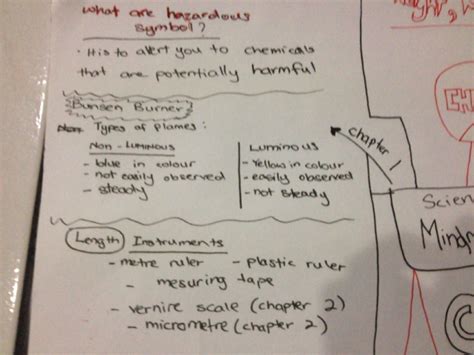 what are hazardous
symbol?
• It is to alert you to chemicals
that are potentially harmful
Bunsen Burner
Types of flames:
Non-Luminous
- blue in colour
- not easily observed
- steady
Luminous
- Yellow in colour
- easily observed
- not steady
chapter 1
Length Instruments
- metre ruler - plastic ruler
- mesuring tape
- vernire scale (chapter 2)
- micrometre (chapter 2)